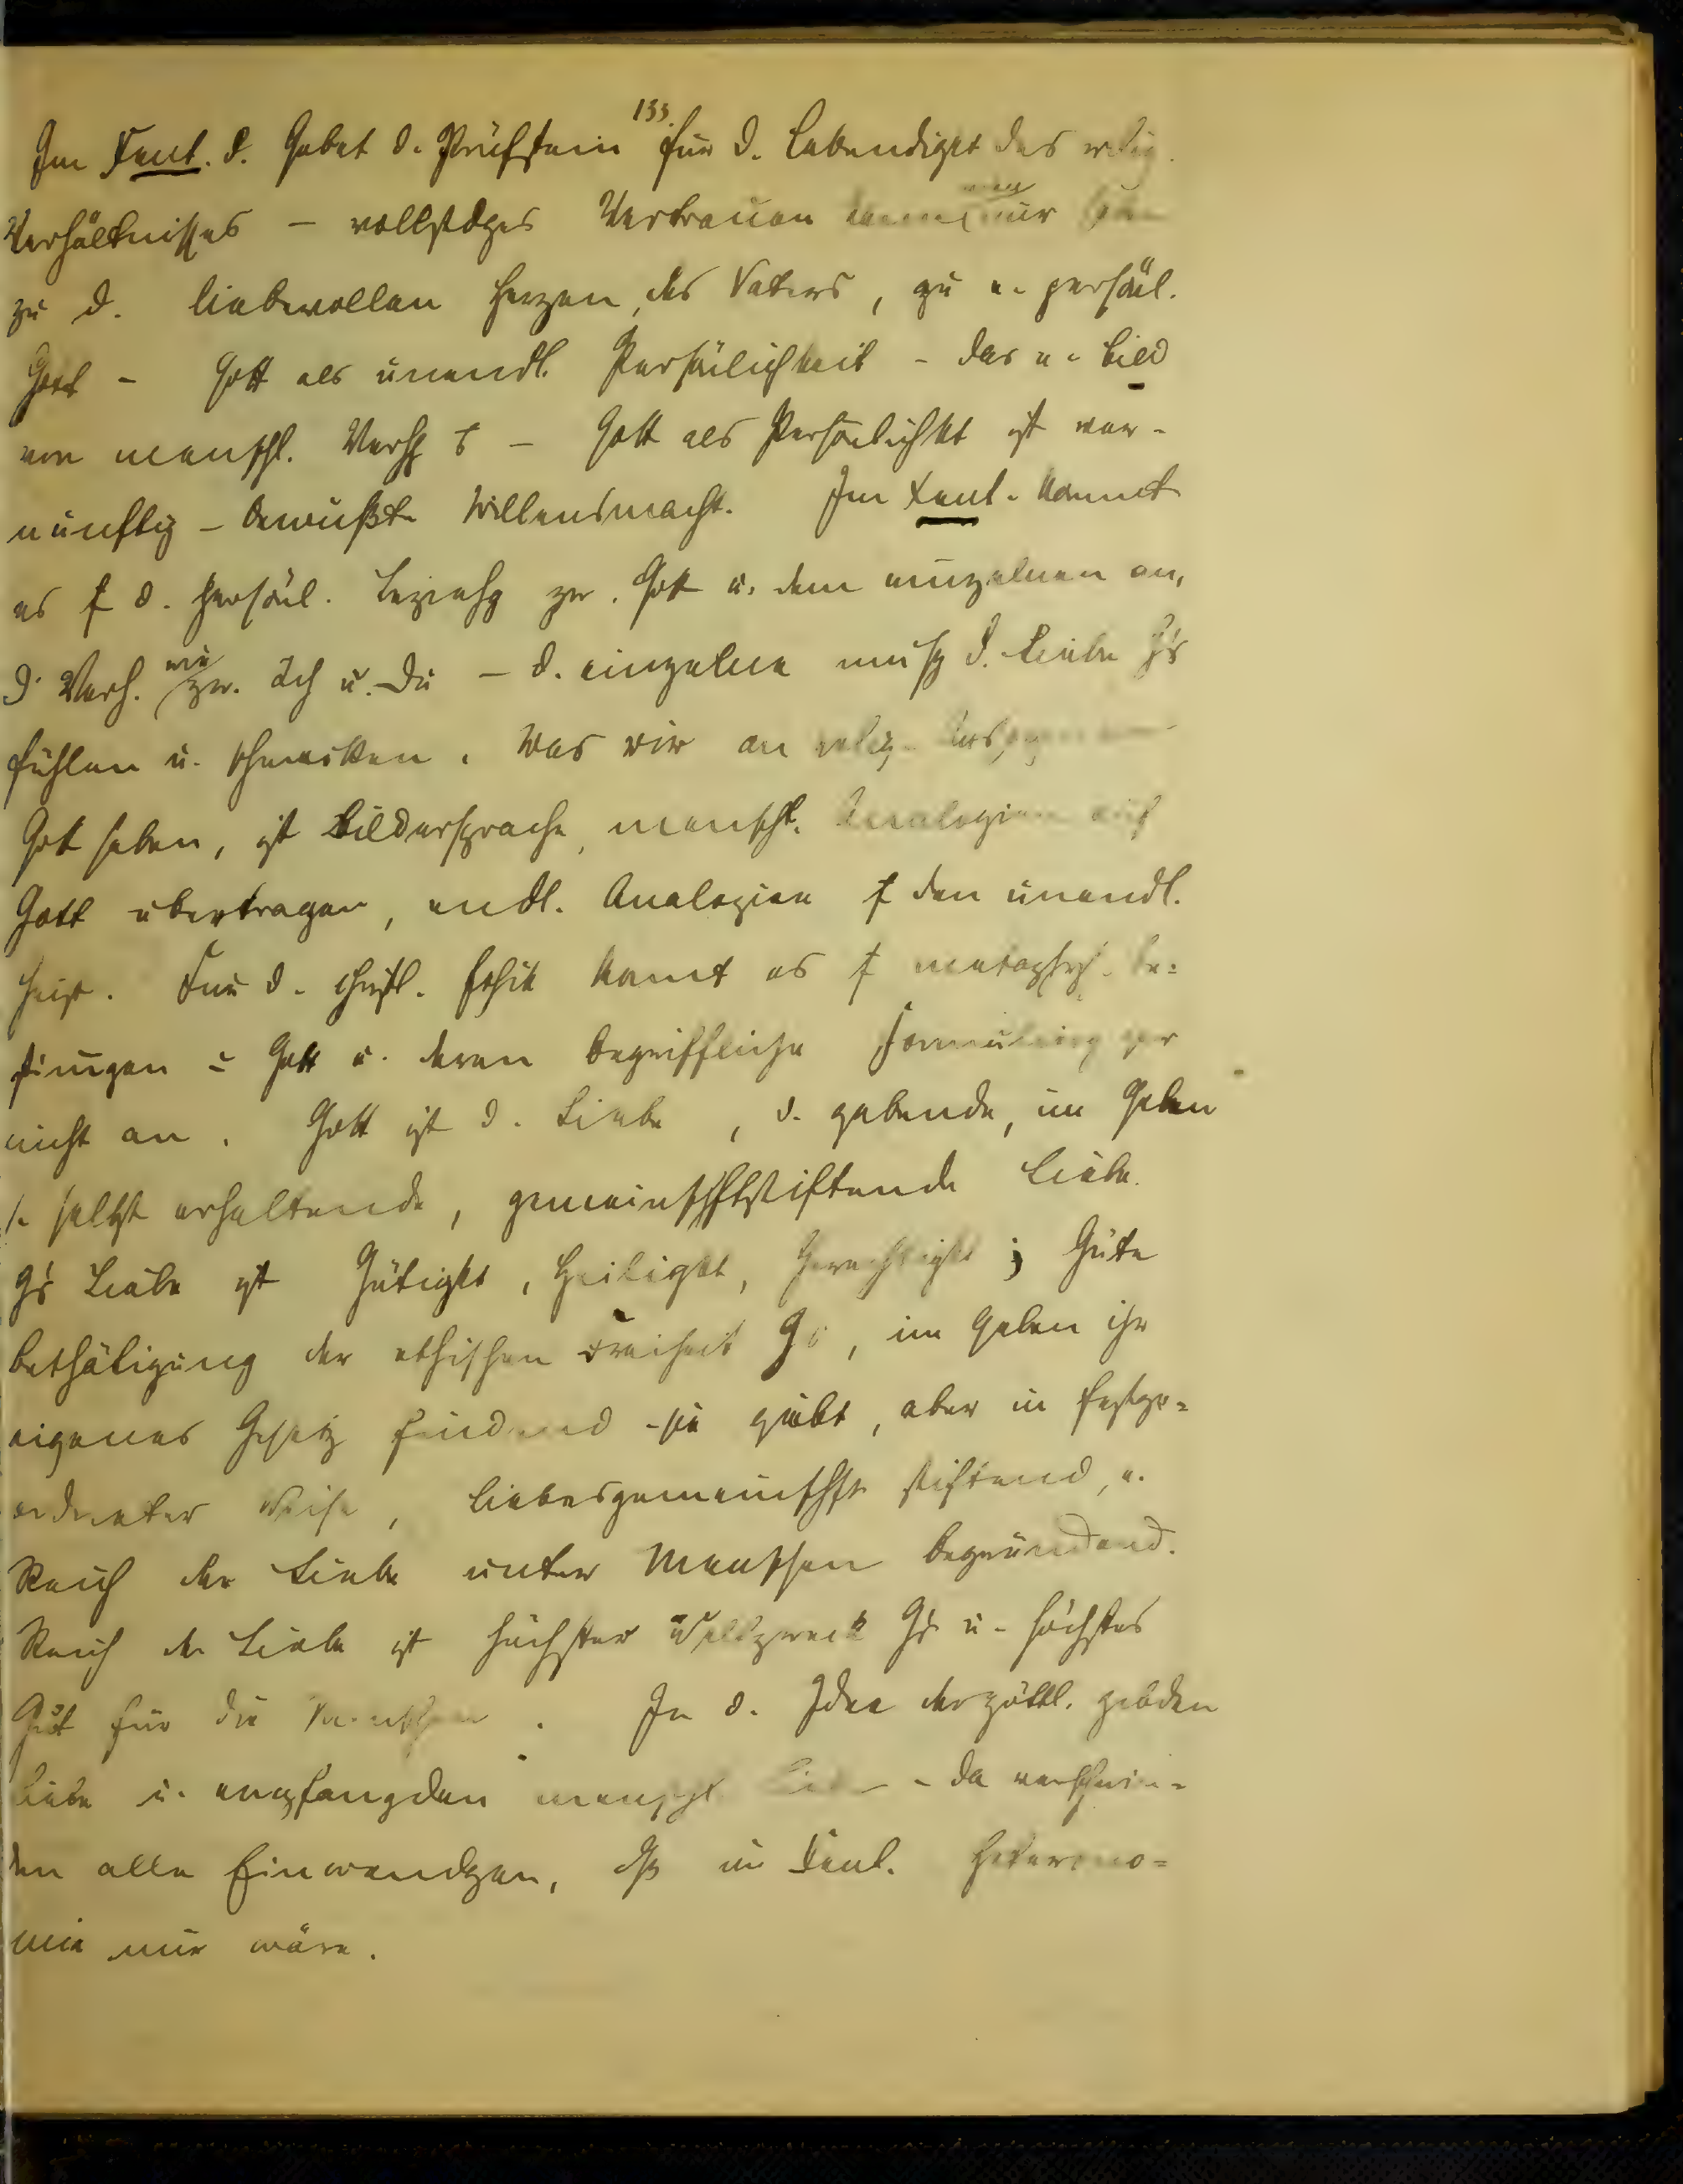 133.
Im Xent. d. Gebet d. Prüfstein für d. Lebendigkt des relig.
Verhältnisses – vollstdges Vertrauen nur
zu d. liebevollen Herzen des Vaters, zu e. persönl.
Gott – Gott als unendl. Persönlichkeit – das e. Bild
von menschl. – Gott als Persönlichkt ist ver-
nünftig-bewußte Willensmacht. Im Xent. kommt
es f d. persönl. Beziehg zw. Gott u. dem einzelnen an,
d. Verh. wie zw. Ich u. Du – d. einzelne muß d. Liebe G's
fühlen u. schmecken. Was wir an relig.
Gott haben, ist Bildersprache, menschl. Analogien auf
Gott übertragen, endl. Analogien f den unendl.
Geist. Für d. christl. Ethik komt es f metaphys. Be=
gar
nicht an. Gott ist d. Liebe, d. gebende, im Geben
s. selbst erhaltende, gemeinschftstiftende Liebe.
G's Liebe ist Gütigkt, Heiligkt, Gerechtigkt; Güte
Bethätigung der ethischen Freiheit G's, im Geben ihr
eigenes Gesetz findend – sie giebt, aber in festge=
ordneter Weise, Liebesgemeinschft stiftend, e.
Reich der Liebe unter Menschen begründend.
Reich der Liebe ist höchster Weltzweck G's u. höchstes
Gut für die Menschen. In d. Idee der göttl. gebden
Liebe u. empfangden menschl. – da verschwin=
den alle Einwendgen, dß im Xent. Heterono=
mie nur wäre.